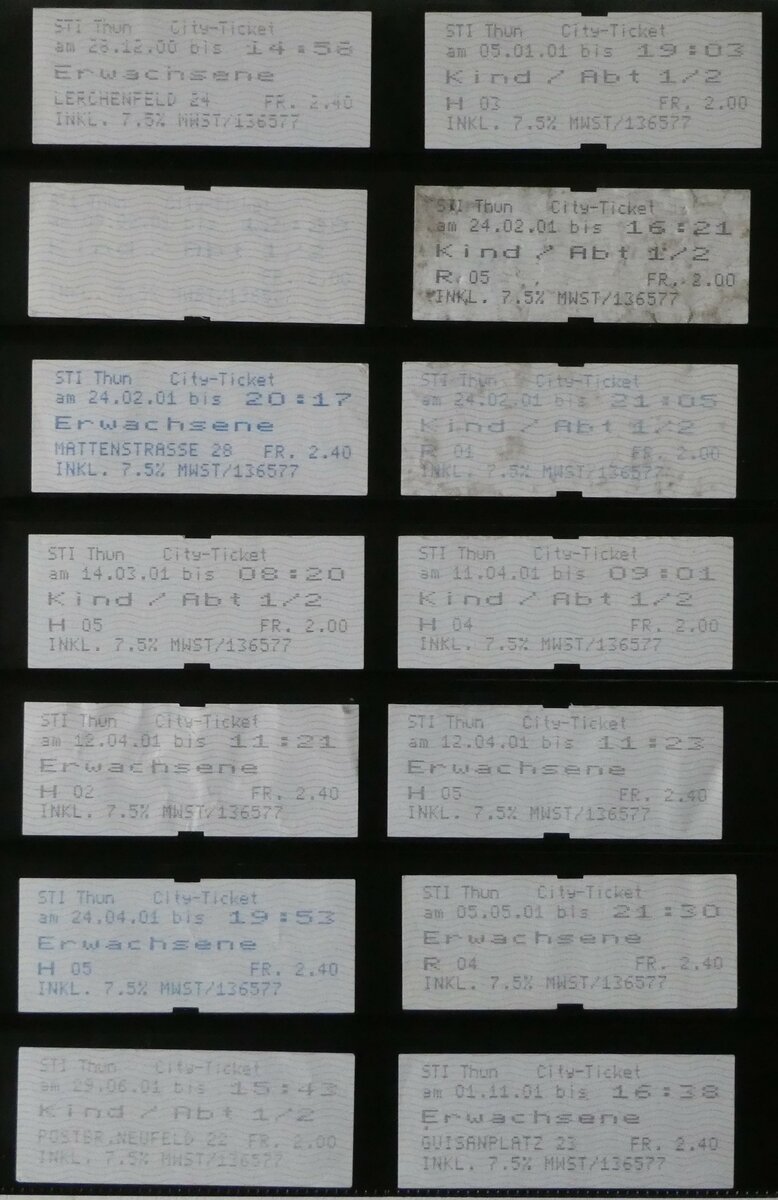 STI Thun City-Ticket
am 28.12.00 bis 14:58
Erwachsene
LERCHENFELD 24 FR. 2.40
INKL. 7.5% MWST/136577
STI Thun City-Ticket
am 05.01.01 bis 19:03
Kind / Abt 1/2
H 03 FR. 2.00
INKL. 7.5% MWST/136577
Abt 1
STI Thun City-Ticket
am 24.02.01 bis 16:21
Kind / Abt 1/2
R 05 FR. 2.00
INKL. 7.5% MWST/136577
STI Thun City-Ticket
am 24.02.01 bis 20:17
Erwachsene
MATTENSTRASSE 28 FR. 2.40
INKL. 7.5% MWST/136577
STI Thun City-Ticket
am 24.02.01 bis 21:05
Kind / Abt 1/2
R 01 FR. 2.00
INKL. 7.5% MWST/136577
STI Thun City-Ticket
am 14.03.01 bis 08:20
Kind / Abt 1/2
H 05 FR. 2.00
INKL. 7.5% MWST/136577
STI Thun City-Ticket
am 11.04.01 bis 09:01
Kind / Abt 1/2
H 04 FR. 2.00
INKL. 7.5% MWST/136577
STI Thun City-Ticket
am 12.04.01 bis 11:21
Erwachsene
H 02 FR. 2.40
INKL. 7.5% MWST/136577
STI Thun City-Ticket
am 12.04.01 bis 11:23
Erwachsene
H 05 FR. 2.40
INKL. 7.5% MWST/136577
STI Thun City-Ticket
am 24.04.01 bis 19:53
Erwachsene
H 05 FR. 2.40
INKL. 7.5% MWST/136577
STI Thun City-Ticket
am 05.05.01 bis 21:30
Erwachsene
R 04 FR. 2.40
INKL. 7.5% MWST/136577
STI Thun City-Ticket
am 29.06.01 bis 15:43
Kind / Abt 1/2
POSTER.NEUFELD 22 FR. 2.00
INKL. 7.5% MWST/136577
STI Thun City-Ticket
am 01.11.01 bis 16:38
Erwachsene
GUISANPLATZ 23 FR. 2.40
INKL. 7.5% MWST/136577